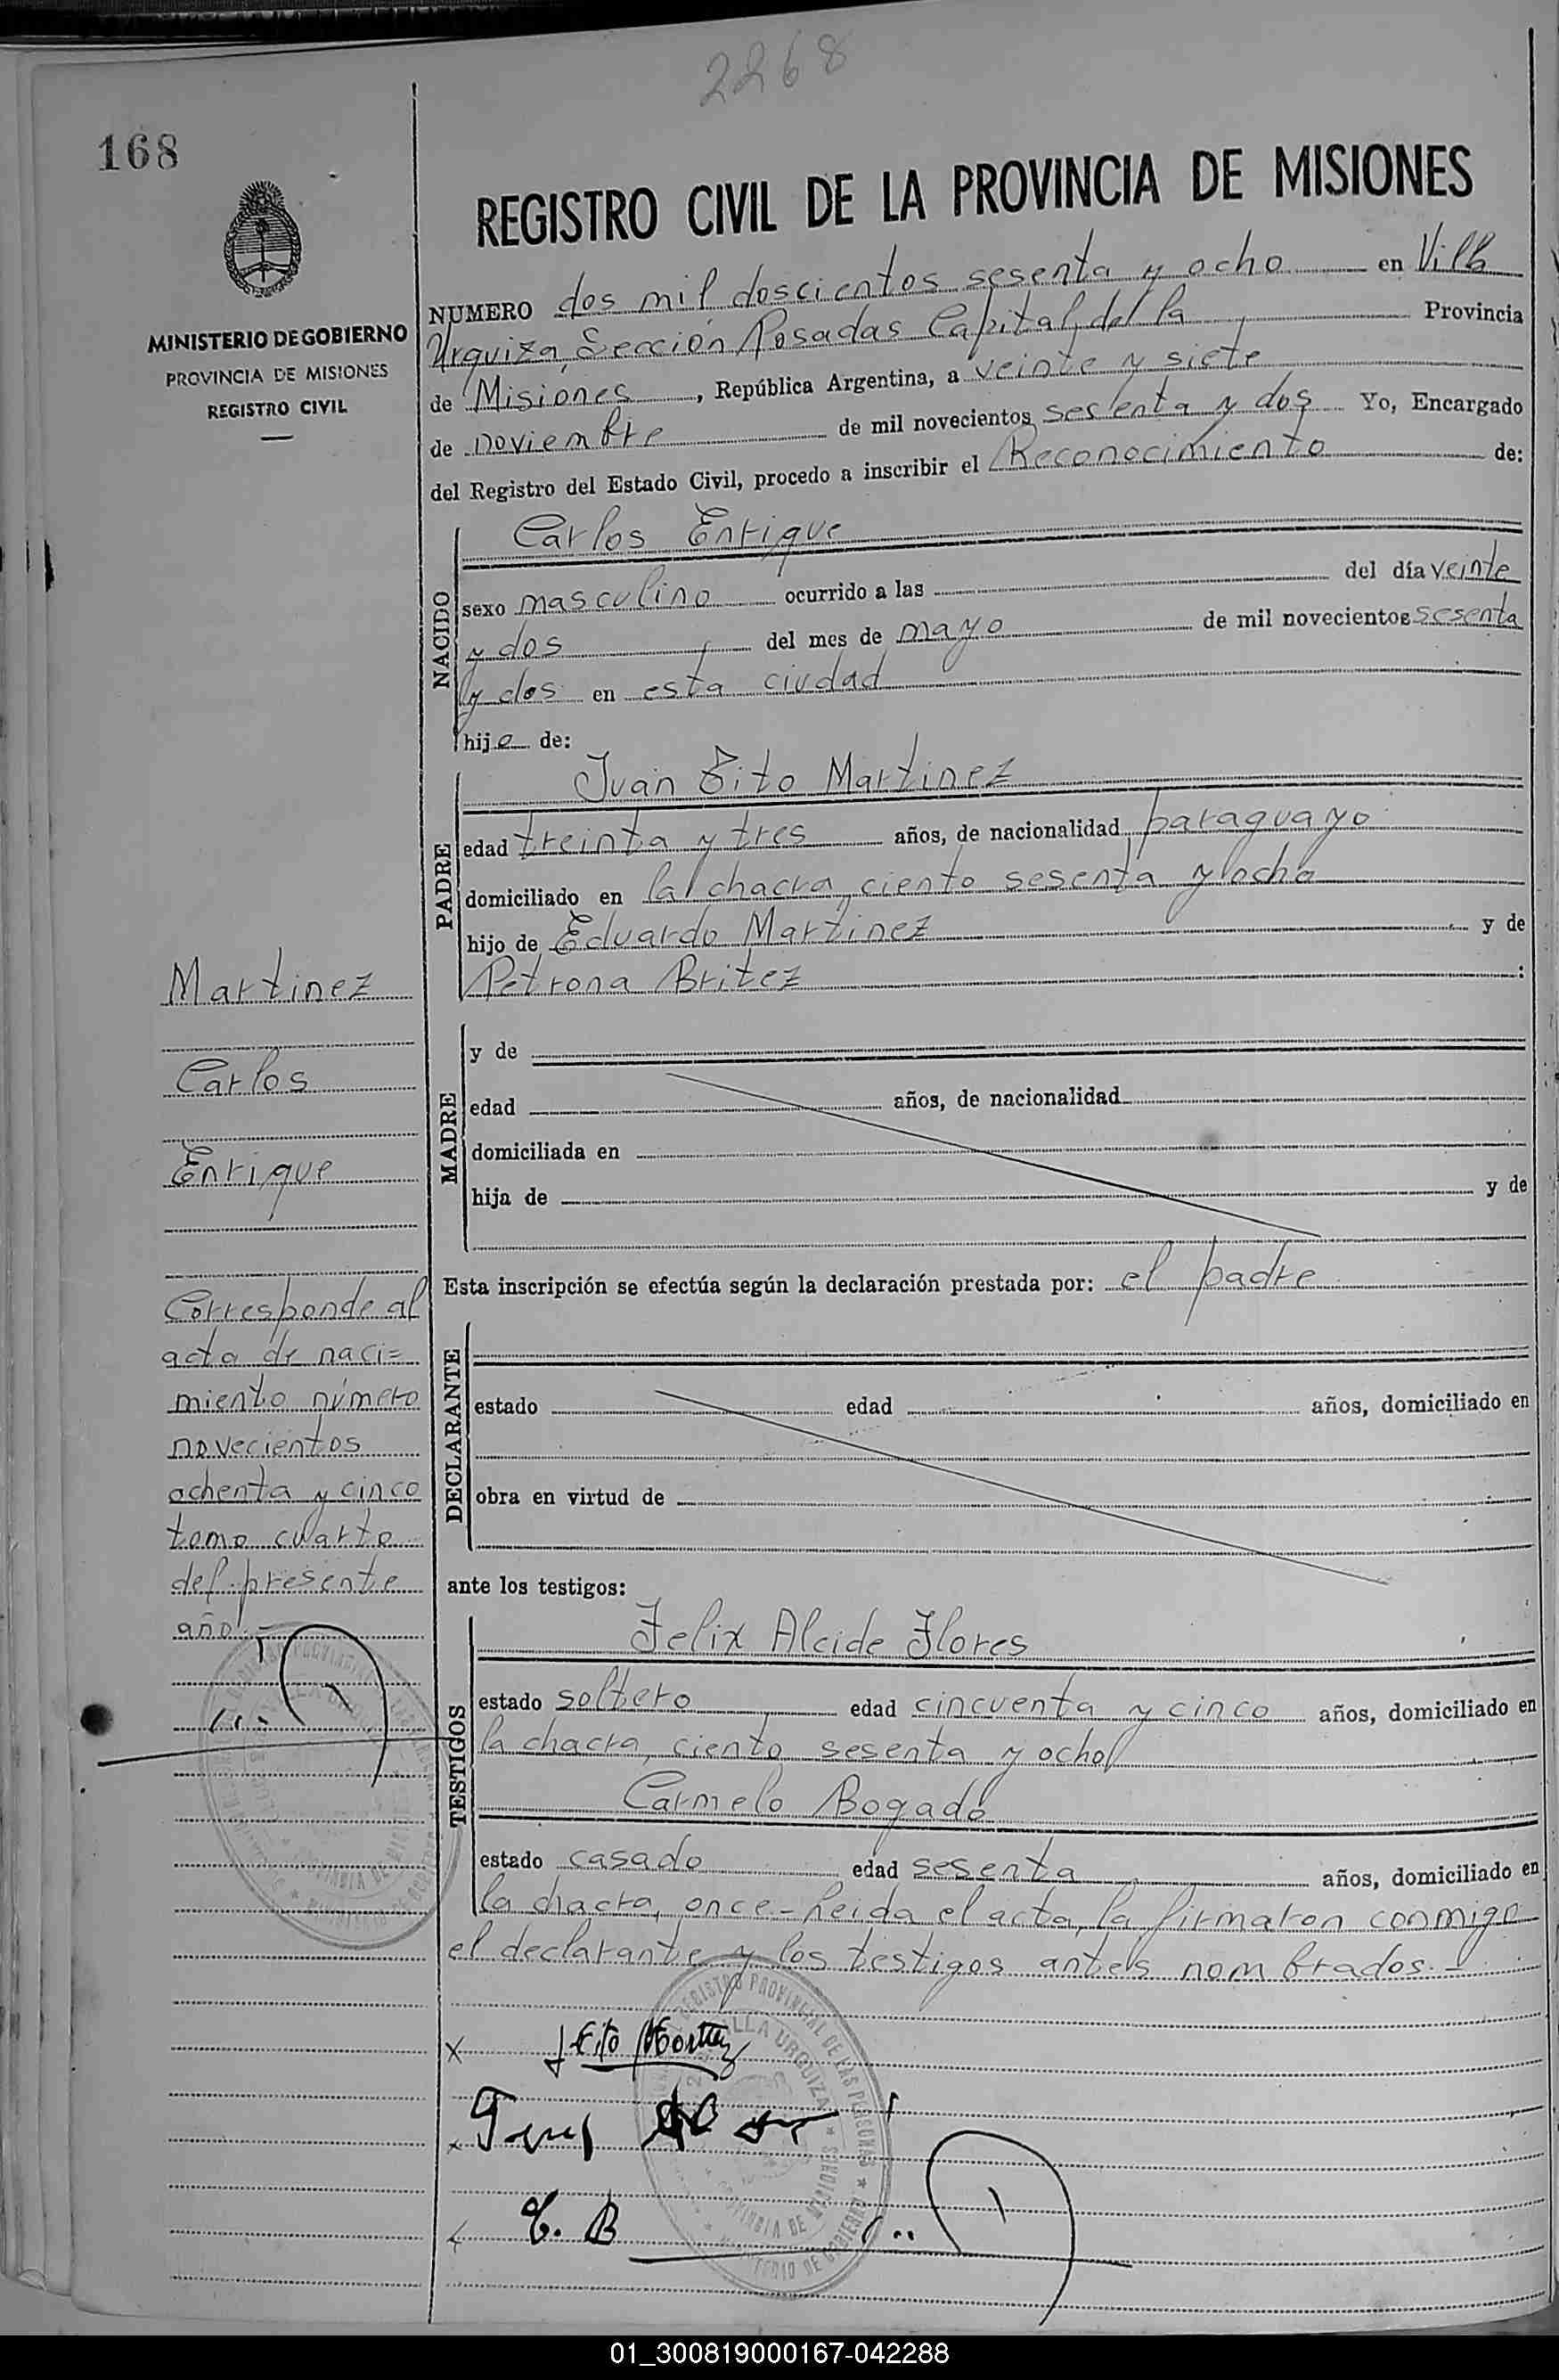 2268
168
REGISTRO CIVIL DE LA PROVINCIA DE MISIONES
MINISTERIO DE GOBIERNO
PROVINCIA DE MISIONES
REGISTRO CIVIL
NUMERO dos mil doscientos sesenta y ocho en Villa
Urquiza, Sección Posadas Capital de la Provincia
de Misiones, República Argentina, a veinte y siete
de noviembre de mil novecientos sesenta y dos Yo, Encargado
del Registro del Estado Civil, procedo a inscribir el Reconocimiento de:
NACIDO
Carlos Enrique
sexo masculino ocurrido a las del día veinte
y dos del mes de mayo de mil novecientos sesenta
y dos en esta ciudad
hijo de:
PADRE
Juan Tito Martinez
edad treinta y tres años, de nacionalidad paraguayo
domiciliado en la chacra ciento sesenta y ocho
hijo de Eduardo Martinez y de
Petrona Britez :
Martinez
Carlos
Enrique
MADRE
y de
edad años, de nacionalidad
domiciliada en
hija de y de
Esta inscripción se efectúa según la declaración prestada por: el padre
Corresponde al
acta de naci=
miento número
novecientos
ochenta y cinco
tomo cuarto
del presente
año.-
DECLARANTE
estado edad años, domiciliado en
obra en virtud de
ante los testigos:
TESTIGOS
Felix Alcide Flores
estado soltero edad cincuenta y cinco años, domiciliado en
la chacra, ciento sesenta y ocho
Carmelo Bogado
estado casado edad sesenta años, domiciliado en
la chacra, once.- Leida el acta, la firmaron conmigo
el declarante y los testigos antes nombrados.-
REGISTRO PROVINCIAL DE LAS PERSONAS
VILLA URQUIZA
PROVINCIA DE MISIONES
MINISTERIO DE GOBIERNO
C. B
01_300819000167-042288